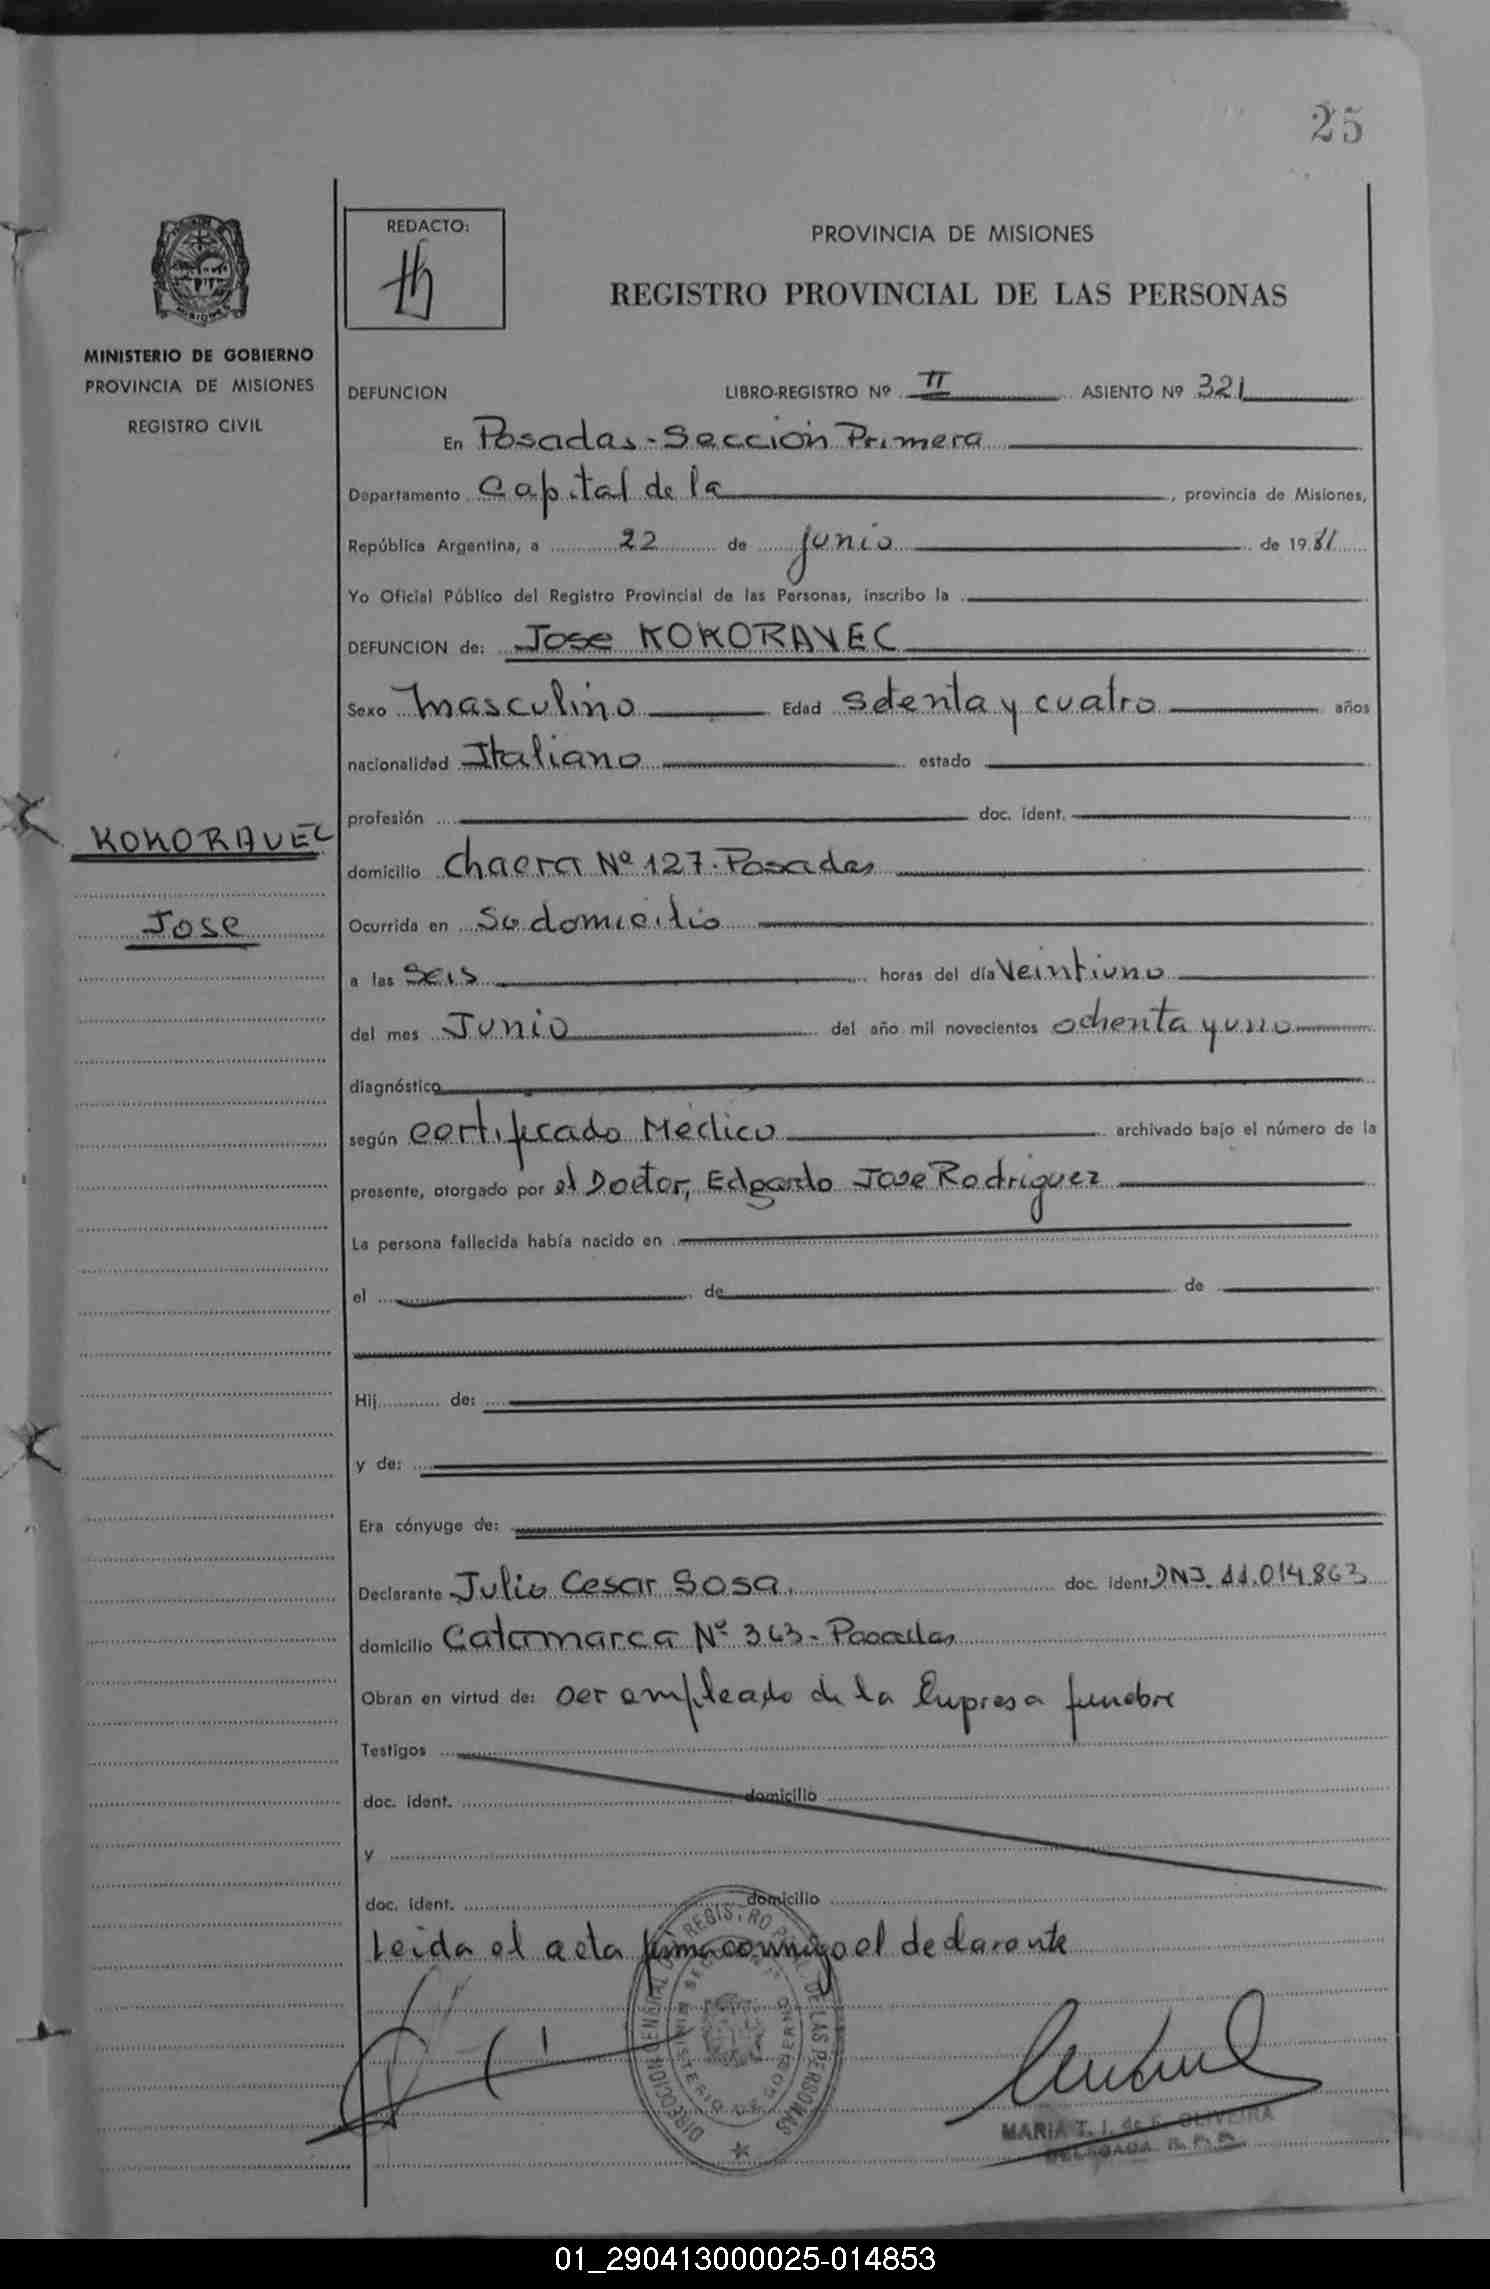 25
REDACTO:
PROVINCIA DE MISIONES
REGISTRO PROVINCIAL DE LAS PERSONAS
MINISTERIO DE GOBIERNO
PROVINCIA DE MISIONES
REGISTRO CIVIL
DEFUNCION LIBRO-REGISTRO Nº II ASIENTO Nº 321
En Posadas-Sección Primera
Departamento Capital de la, provincia de Misiones,
República Argentina, a 22 de junio de 1981
Yo Oficial Público del Registro Provincial de las Personas, inscribo la
DEFUNCION de: Jose KOKORAVEC
Sexo Masculino Edad Setenta y cuatro años
nacionalidad Italiano estado
profesión doc. ident.
KOKORAVEC
domicilio Chacra Nº 127. Posadas
Jose
Ocurrida en Su domicilio
a las Seis horas del día Veintiuno
del mes Junio del año mil novecientos ochenta y uno
diagnóstico
según Certificado Médico archivado bajo el número de la
presente, otorgado por el Doctor, Edgardo Jose Rodriguez
La persona fallecida había nacido en
el de de
Hij de:
y de:
Era cónyuge de:
Declarante Julio Cesar Sosa. doc. ident. DNI. 11.014.863
domicilio Catamarca Nº 363- Posadas
Obran en virtud de: ser empleado de la Empresa funebre
Testigos
doc. ident. domicilio
y
doc. ident. domicilio
Leida el acta firma conmigo el declarante
DIRECCION GENERAL DE REGISTRO PROV. DE LAS PERSONAS
SECCION 1ª
MINISTERIO DE GOBIERNO
MARIA T. I. de F. OLIVEIRA
DELEGADA R.P.P.
01_290413000025-014853